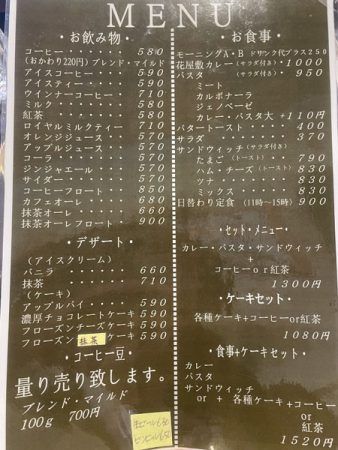 MENU
・お飲み物・
コーヒー・・・・・・・580
(おかわり220円)ブレンド・マイルド
アイスコーヒー・・・・590
アイスティー・・・・・590
ウインナーコーヒー・・710
ミルク・・・・・・・・580
紅茶・・・・・・・・・580
ロイヤルミルクティー・710
オレンジジュース・・・570
アップルジュース・・・570
コーラ・・・・・・・・570
ジンジャエール・・・・570
サイダー・・・・・・・570
コーヒーフロート・・・850
カフェオーレ・・・・・680
抹茶オーレ・・・・・・660
抹茶オーレフロート・・900
・デザート・
(アイスクリーム)
バニラ・・・・・・660
抹茶・・・・・・・710
(ケーキ)
アップルパイ・・・・590
濃厚チョコレートケーキ590
フローズンチーズケーキ590
フローズン抹茶ケーキ590
・コーヒー豆・
量り売り致します。
ブレンド・マイルド
100g 700円
・お食事・
モーニングA・B ドリンク代プラス250
花屋敷カレー(サラダ付き)・1000
パスタ (サラダ付き)・950
ミート
カルボナーラ
ジェノベーゼ
カレー・パスタ大+110円
バタートースト・・・400
サラダ・・・・・・・370
サンドウィッチ(サラダ付き)
たまご(トースト)・・790
ハム・チーズ(トースト)830
ツナ・・・・・・・830
ミックス・・・・・830
日替わり定食(11時～15時)900
・セット・メニュー・
カレー・パスタ・サンドウィッチ
+
コーヒーor紅茶
1300円
・ケーキセット・
各種ケーキ+コーヒーor紅茶
1080円
・食事+ケーキセット・
カレー
パスタ
サンドウィッチ
or + 各種ケーキ+コーヒー
or
紅茶
1520円